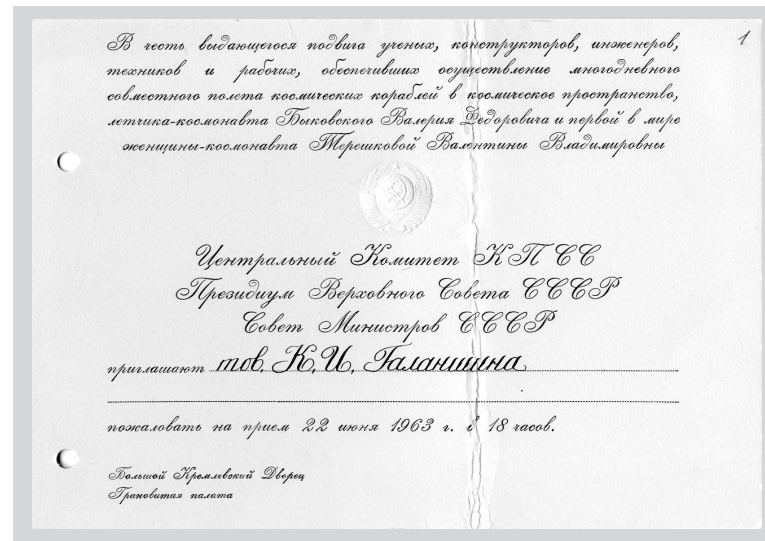 1
В честь выдающегося подвига ученых, конструкторов, инженеров,
техников и рабочих, обеспечивших осуществление многодневного
совместного полета космических кораблей в космическое пространство,
летчика-космонавта Быковского Валерия Федоровича и первой в мире
женщины-космонавта Терешковой Валентины Владимировны
Центральный Комитет КПСС
Президиум Верховного Совета СССР
Совет Министров СССР
приглашают тов. К. И. Галаншина
пожаловать на прием 22 июня 1963 г. в 18 часов.
Большой Кремлевский Дворец
Грановитая палата